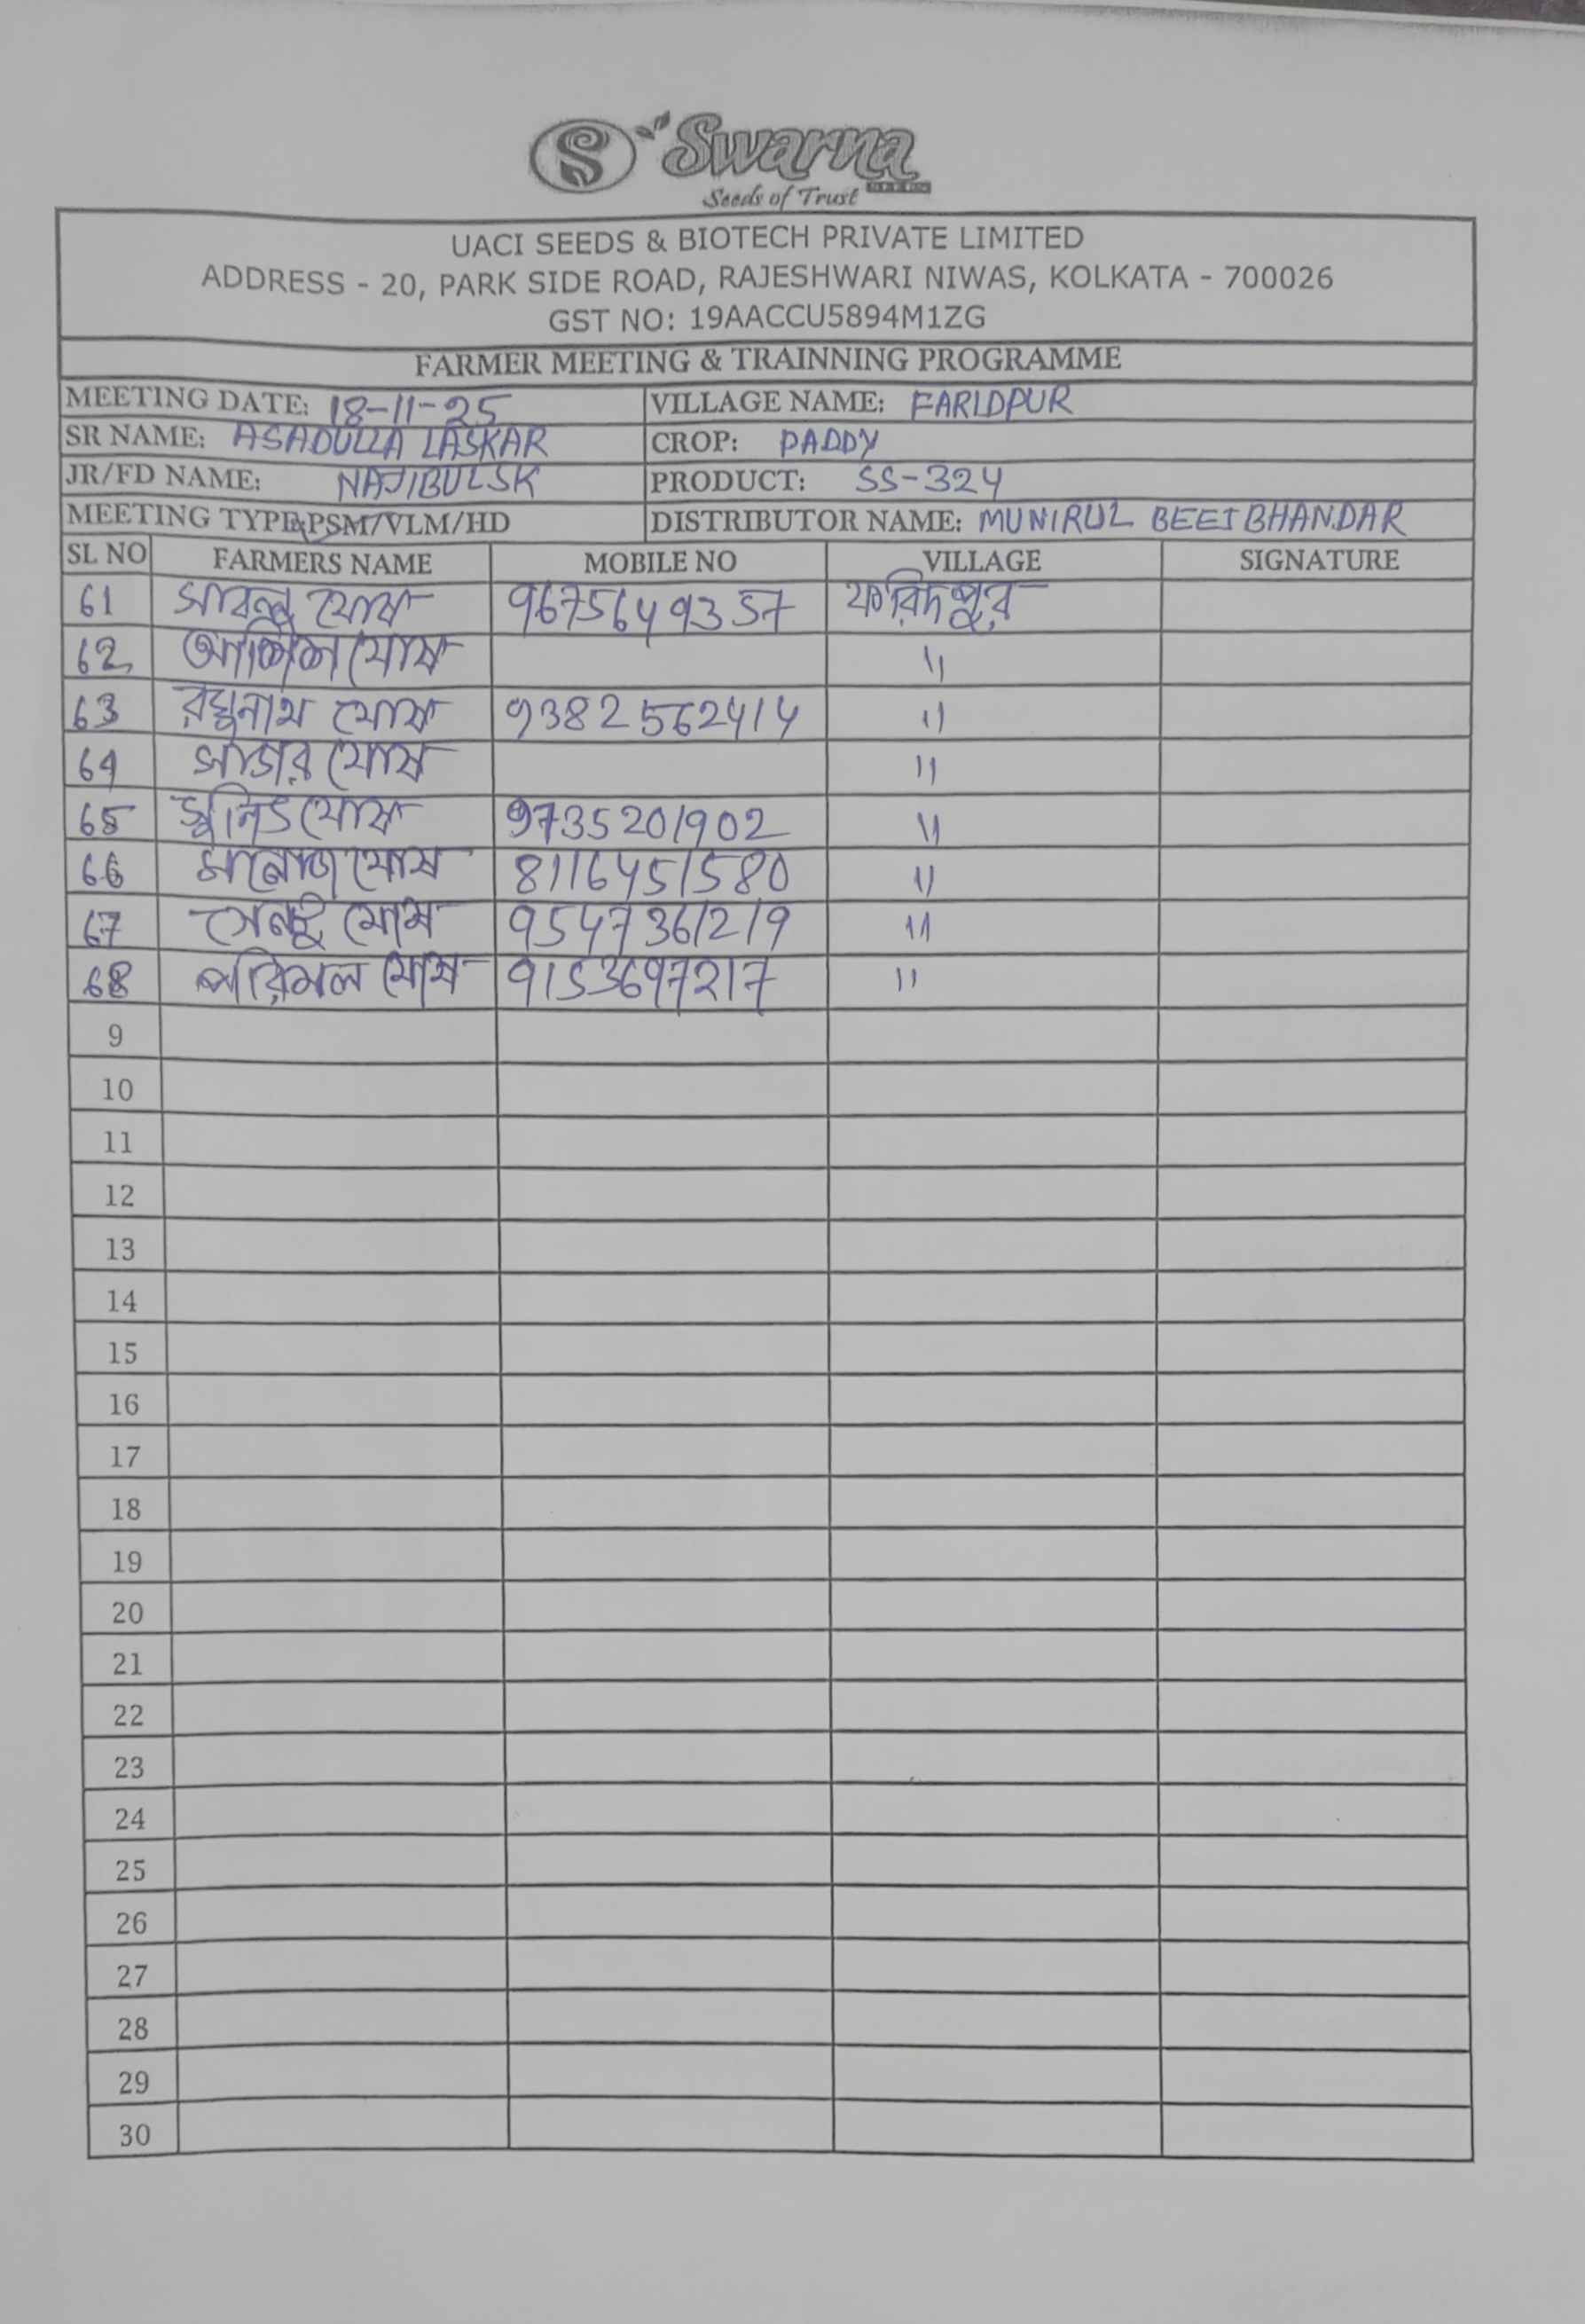 Swarna
Seeds of Trust
UACI SEEDS & BIOTECH PRIVATE LIMITED
ADDRESS - 20, PARK SIDE ROAD, RAJESHWARI NIWAS, KOLKATA - 700026
GST NO: 19AACCU5894M1ZG
FARMER MEETING & TRAINNING PROGRAMME
MEETING DATE: 18-11-25 VILLAGE NAME: FARIDPUR
SR NAME: ASADULLA LASKAR CROP: PADDY
JR/FD NAME: NAJIBUL SK PRODUCT: SS-324
MEETING TYPE: PSM/VLM/HD DISTRIBUTOR NAME: MUNIRUL BEEJ BHANDAR
SL NO FARMERS NAME MOBILE NO VILLAGE SIGNATURE
61 ঘোষ 9675649357 ফরিদপুর
62 ঘোষ "
63 রঘুনাথ ঘোষ 9382562414 "
64 ঘোষ "
65 ঘোষ 9735201902 "
66 মনোজ ঘোষ 8116451580 "
67 ঘোষ 9547361219 "
68 পরিমল ঘোষ 9153697217 "
9
10
11
12
13
14
15
16
17
18
19
20
21
22
23
24
25
26
27
28
29
30